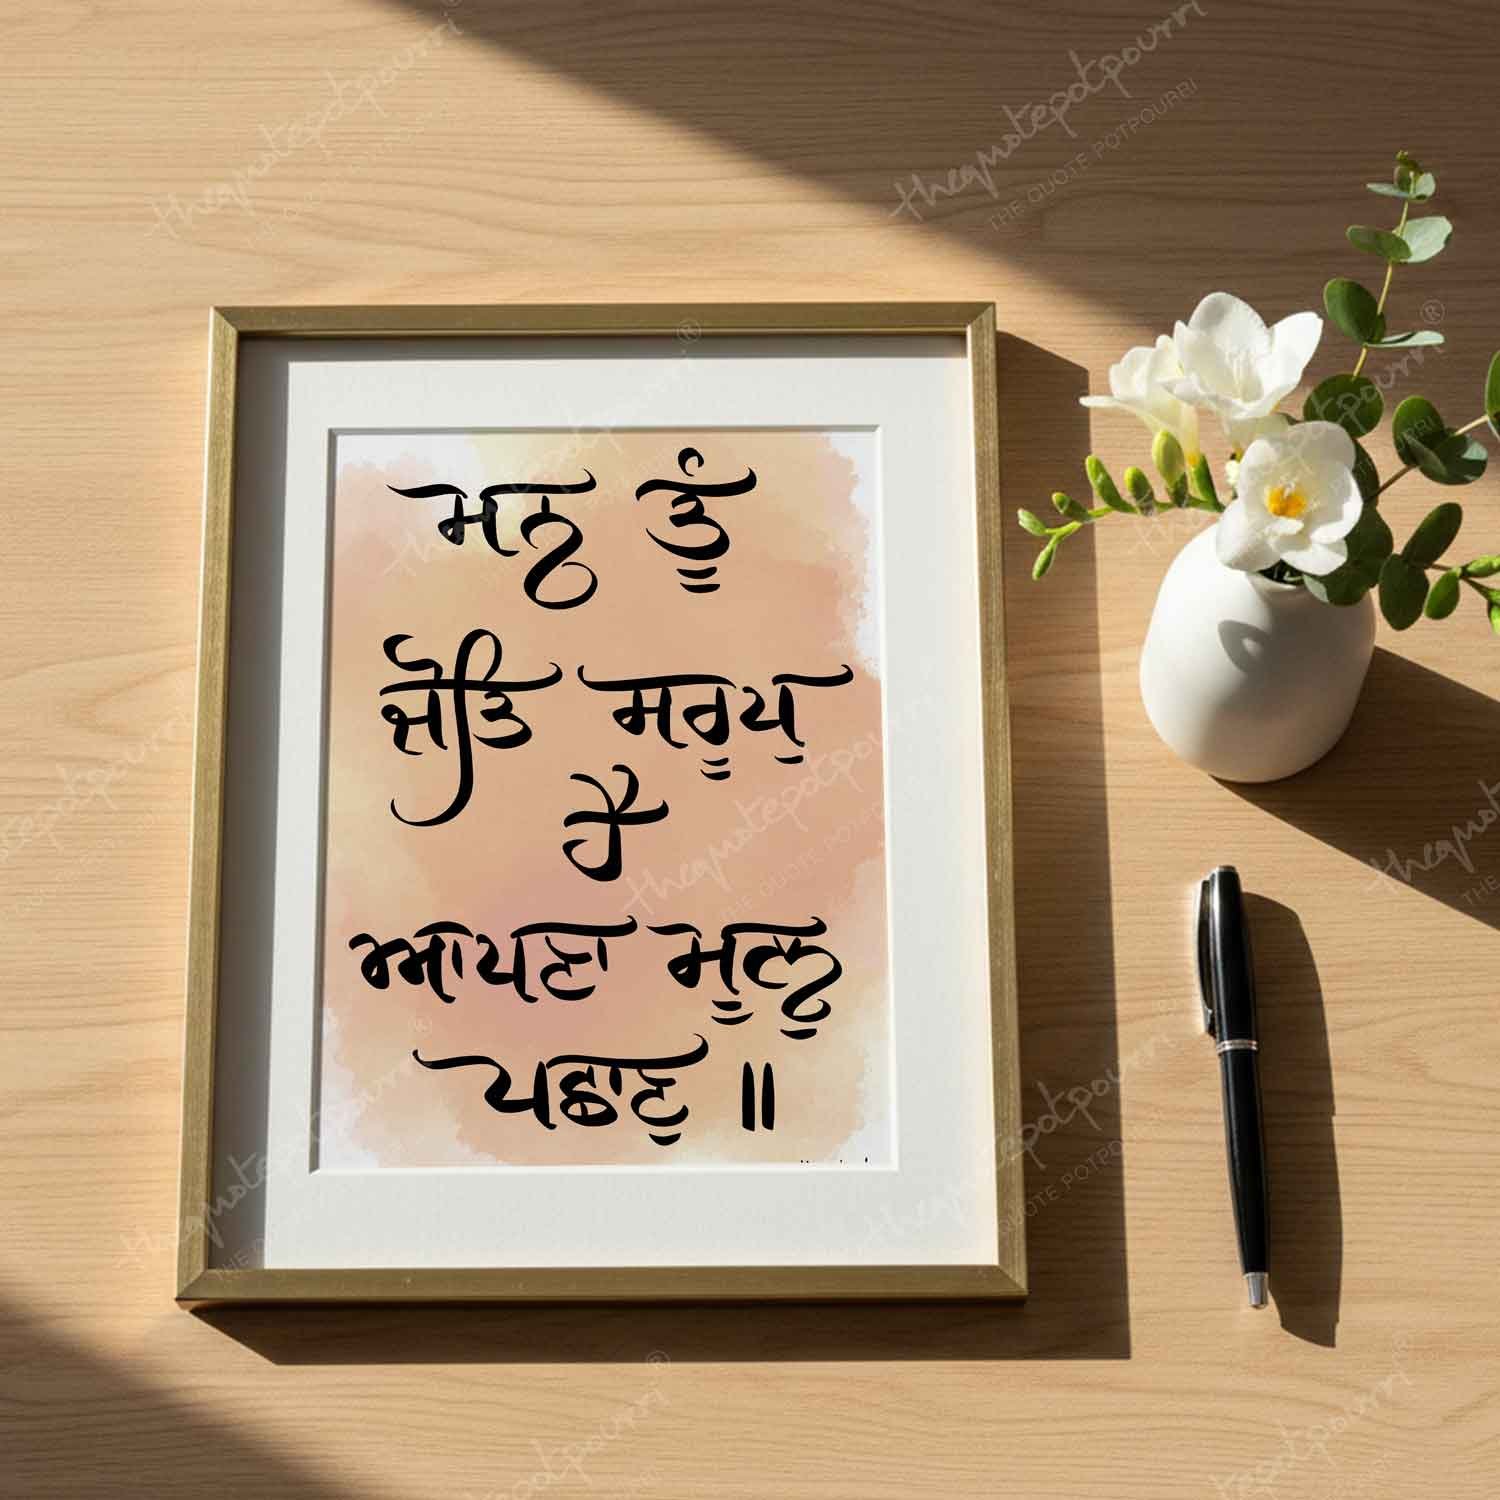 ਮਨ ਤੂੰ
ਜੋਤਿ ਸਰੂਪੁ
ਹੈ
ਆਪਣਾ ਮੂਲੁ
ਪਛਾਣੁ ॥
thequotepotpourri®
THE QUOTE POTPOURRI